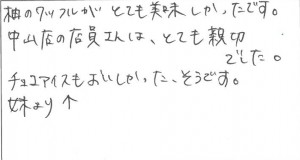 柚のワッフルがとても美味しかったです。
中山店の店員さんは、とても親切
でした。
チョコアイスもおいしかった、そうです。
妹より↑